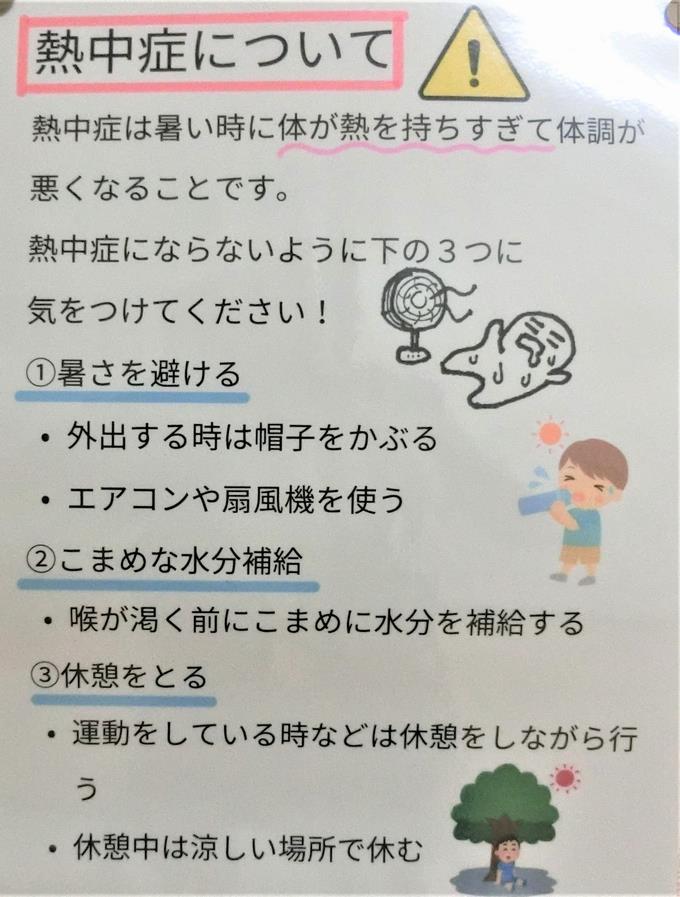 熱中症について
熱中症は暑い時に体が熱を持ちすぎて体調が
悪くなることです。
熱中症にならないように下の３つに
気をつけてください！
①暑さを避ける
• 外出する時は帽子をかぶる
• エアコンや扇風機を使う
②こまめな水分補給
• 喉が渇く前にこまめに水分を補給する
③休憩をとる
• 運動をしている時などは休憩をしながら行
う
• 休憩中は涼しい場所で休む